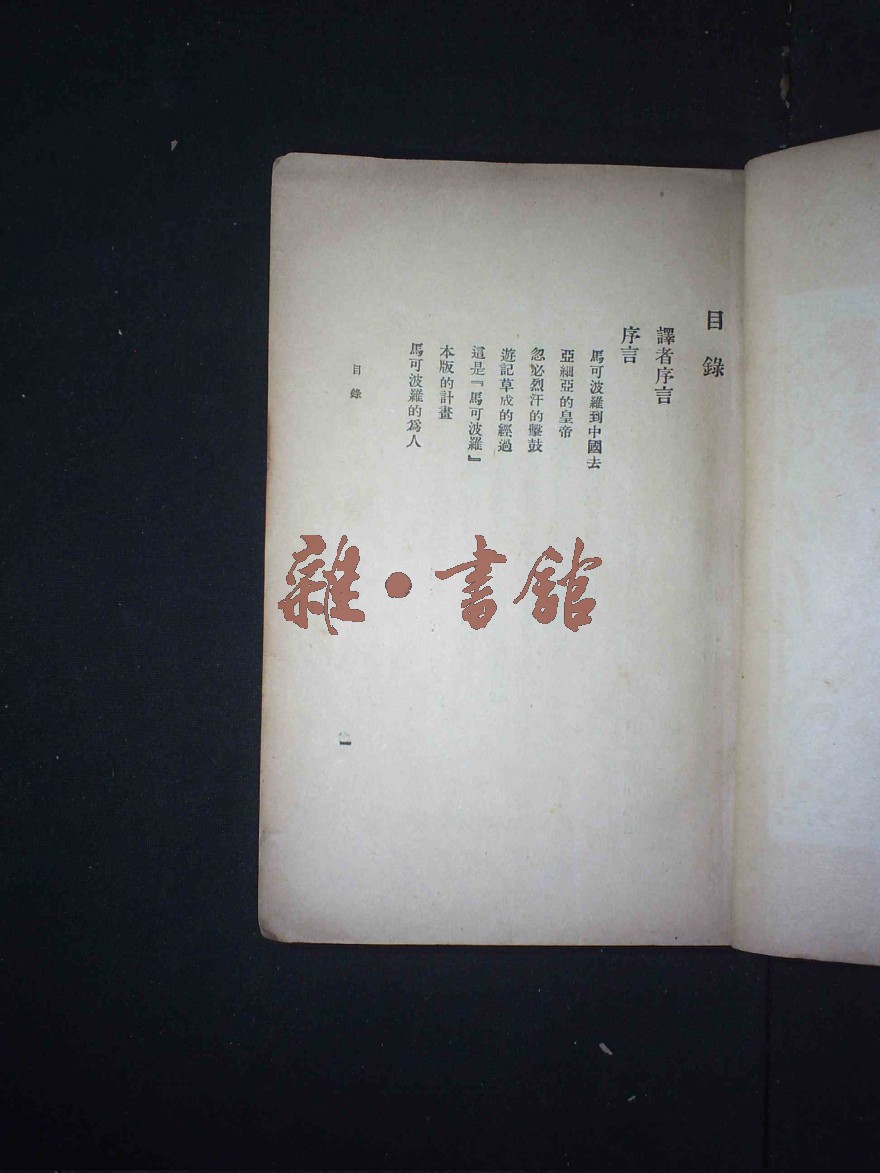 目錄
譯者序言
序言
馬可波羅到中國去
亞細亞的皇帝
忽必烈汗的鼙鼓
遊記草成的經過
這是『馬可波羅』
本版的計畫
馬可波羅的為人
目錄
一
雜·書館